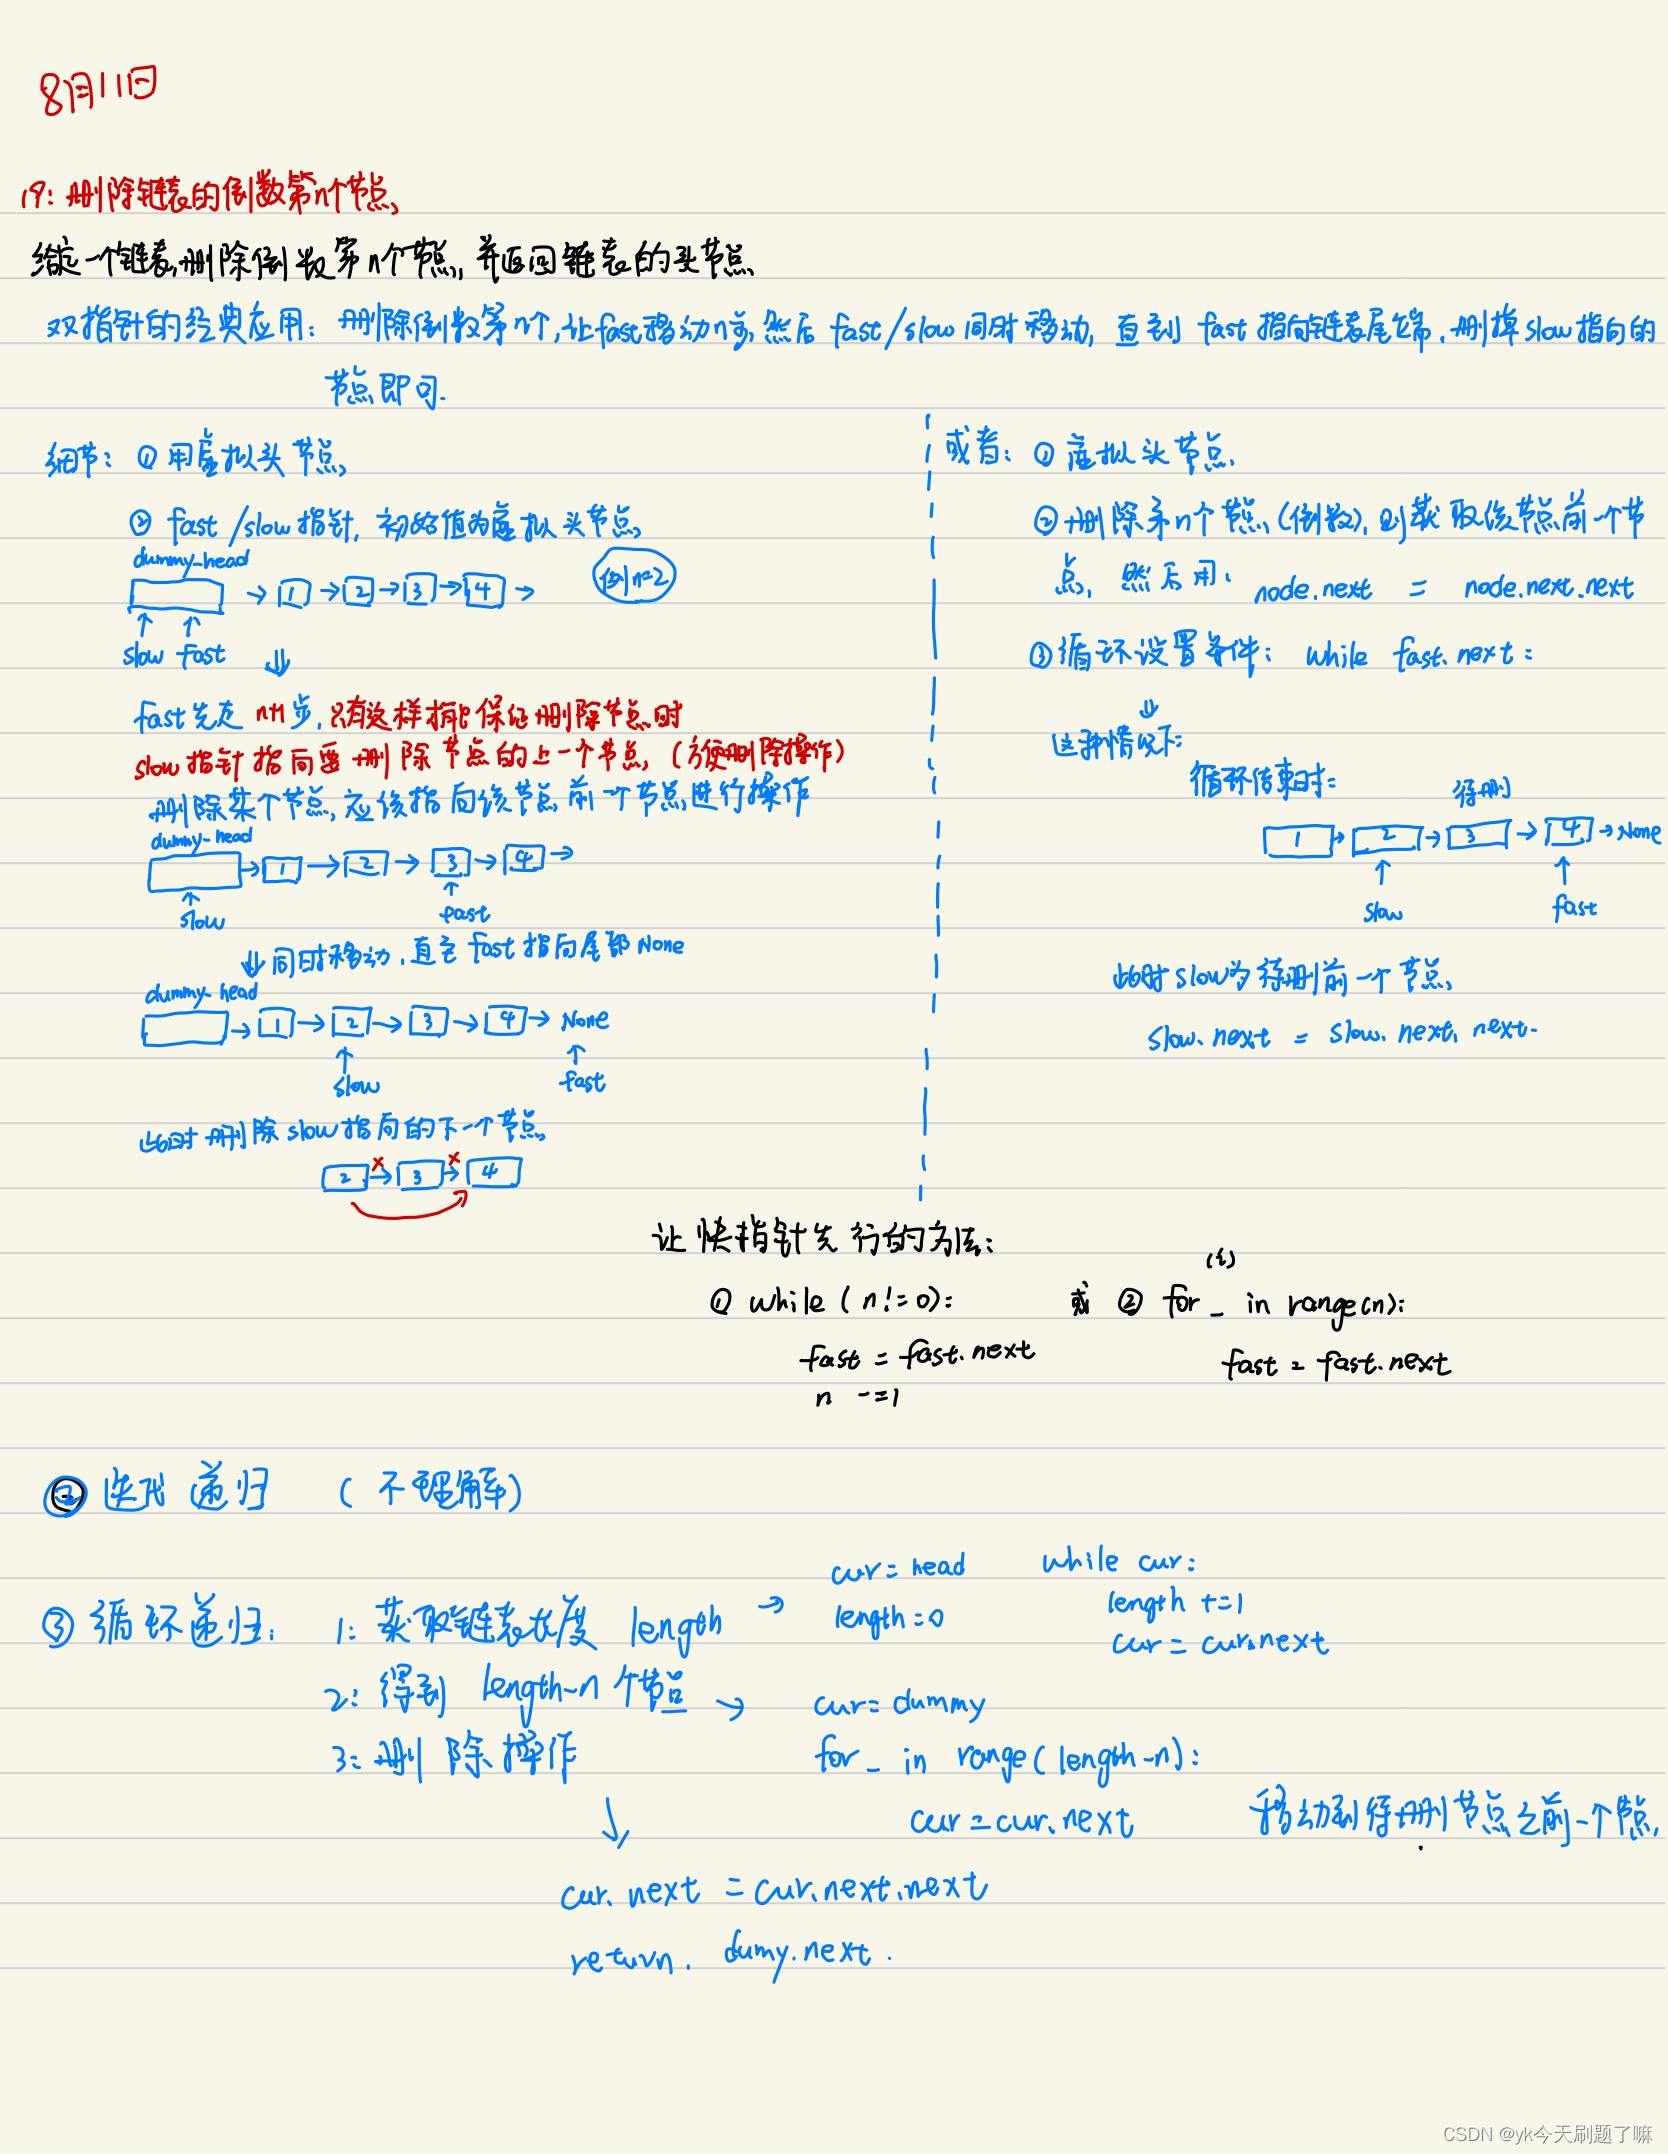 8月11日
19: 删除链表的倒数第n个节点
给定一个链表,删除倒数第n个节点,并返回链表的头节点
双指针的经典应用: 删除倒数第n个,让fast移动n步,然后 fast/slow 同时移动, 直到 fast 指向链表尾端.删掉slow指向的
节点即可.
细节: ① 用虚拟头节点
② fast/slow指针, 初始值为虚拟头节点
dummy-head
→ 1 → 2 → 3 → 4 →
例n=2
slow fast ⇓
fast先走 n+1 步, 只有这样才能保证删除节点时
slow 指针指向要删除节点的上一个节点, (方便删除操作)
删除某个节点,应该指向该节点前一个节点进行操作
dummy-head
→ 1 → 2 → 3 → 4 →
slow fast
⇓ 同时移动, 直至 fast 指向尾部 None
dummy-head
→ 1 → 2 → 3 → 4 → None
slow fast
此时删除 slow 指向的下一个节点
x x
2 → 3 → 4
或者: ① 虚拟头节点
② 删除第n个节点(倒数),则获取该节点前一个节
点, 然后用: node.next = node.next.next
③ 循环设置条件: while fast.next:
⇓
这种情况下:
循环结束时: 待删
1 → 2 → 3 → 4 → None
slow fast
此时slow为待删前一个节点
slow.next = slow.next.next.
让快指针先行的方法:
① while (n!=0):
fast = fast.next
n -=1
或 ② for _ in range(n):
fast = fast.next
② 迭代递归 (不理解)
③ 循环递归: 1: 获取链表长度 length →
cur = head
length=0
while cur:
length +=1
cur = cur.next
2: 得到 length-n 个节点 →
cur= dummy
for _ in range(length-n):
cur = cur.next 移动到待删节点之前一个节点
3: 删除操作
↓
cur.next = cur.next.next
return. dumy.next.
CSDN @yk今天刷题了嘛